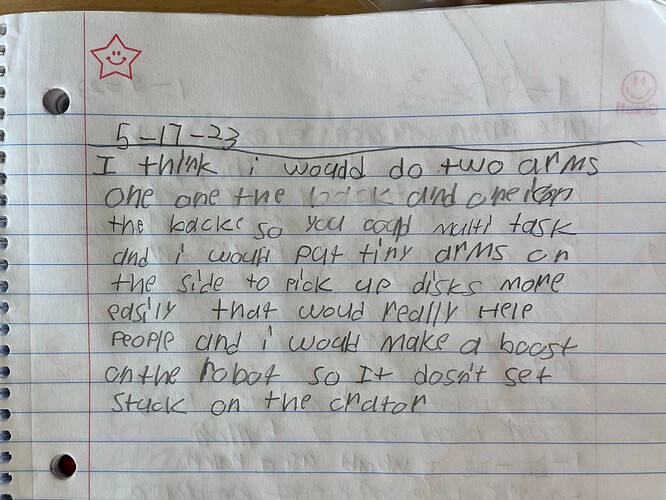 5-17-23
I think i woudd do two arms
one one the back and one on
the backe so you coud multi task
and i woud put tiny arms on
the side to pick up disks more
easily that woud really Help
people and i woud make a boost
on the robot so It dosn't get
stuck on the crator